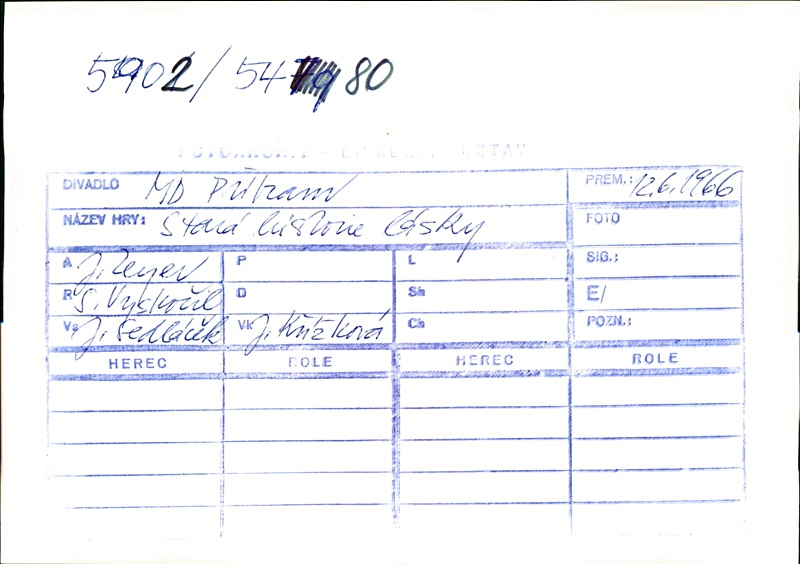 5902/54 80
FOTOARCHIV – DIVADELNÍ ÚSTAV
DIVADLO MD Příbram PREM.: 12.6.1966
NÁZEV HRY: Stará historie lásky FOTO
A J. Zeyer P L SIG.:
R S. Vyskočil D Sh E/
Vs J. Sedláček Vk J. Křížková Ch POZN.:
HEREC ROLE HEREC ROLE